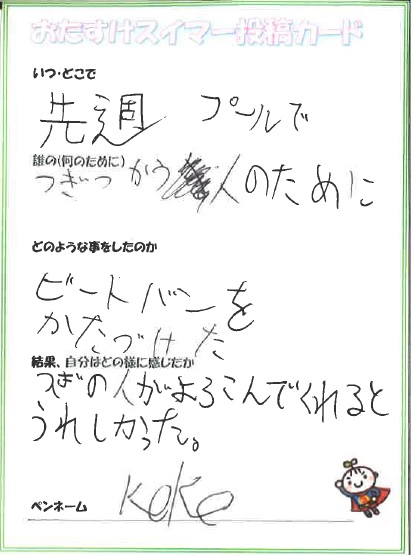 おたすけスイマー投稿カード
いつ・どこで
先週 プールで
誰の(何のために)
つぎつかう人のために
どのような事をしたのか
ビートバンを
かたづけた
結果、自分はどの様に感じたか
つぎの人がよろこんでくれると
うれしかった。
ペンネーム KoKo